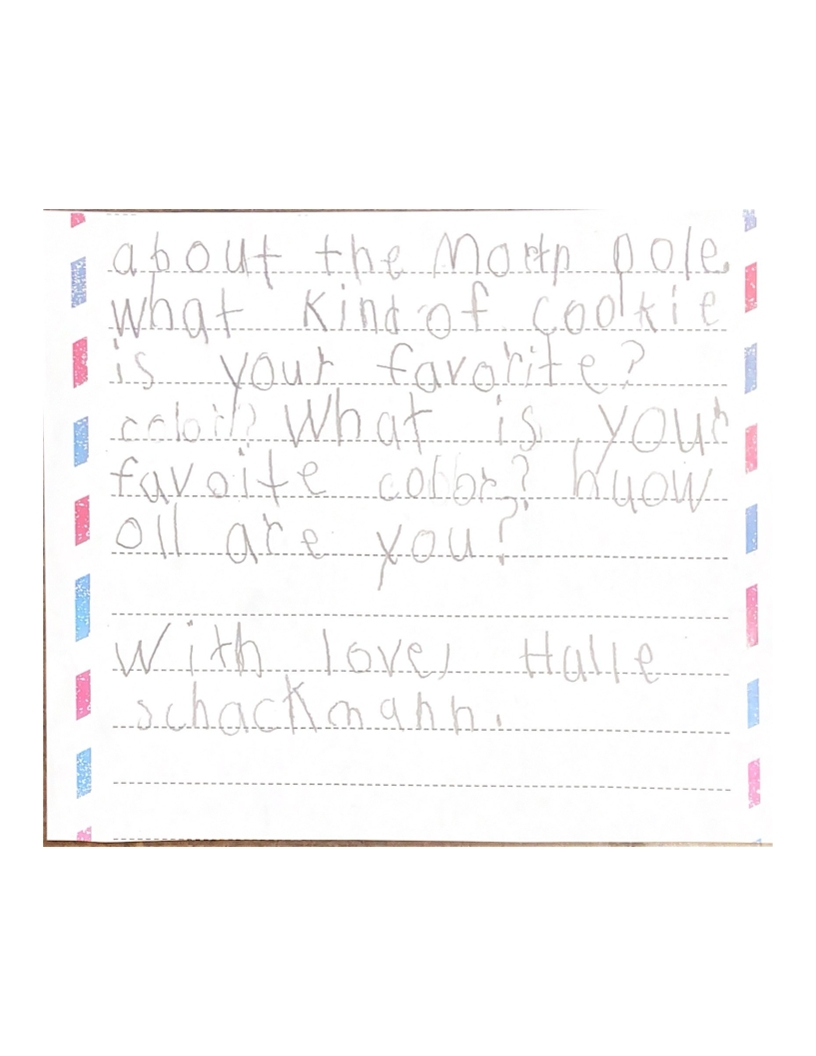 about the Morth pole
what kind of cookie
is your favorite?
color? What is your
favoite color? huow
oll are you?
With love, Halle
schackmann.